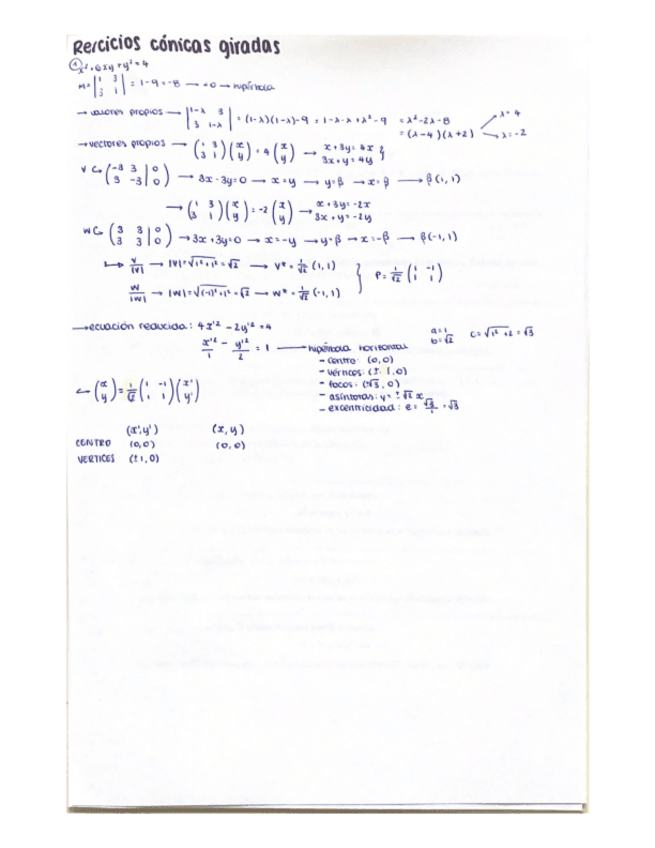 Rercicios cónicas giradas
① x² + 6xy + y² = 4
M = |1 3; 3 1| = 1 - 9 = -8 → <0 → hipérbola
→ valores propios → |1-λ 3; 3 1-λ| = (1-λ)(1-λ) - 9 = 1 - λ - λ + λ² - 9 = λ² - 2λ - 8 = (λ-4)(λ+2) → λ = 4, λ = -2
→ vectores propios → (1 3; 3 1)(x; y) = 4(x; y) → x + 3y = 4x, 3x + y = 4y }
V (-3 3 | 0; 3 -3 | 0) → 3x - 3y = 0 → x = y → y = β → x = β → β(1, 1)
→ (1 3; 3 1)(x; y) = -2(x; y) → x + 3y = -2x, 3x + y = -2y
W (3 3 | 0; 3 3 | 0) → 3x + 3y = 0 → x = -y → y = β → x = -β → β(-1, 1)
→ V/|V| → |V| = √1² + 1² = √2 → V* = 1/√2 (1, 1)
W/|W| → |W| = √(-1)² + 1² = √2 → W* = 1/√2 (-1, 1) } P = 1/√2 (1 -1; 1 1)
→ ecuación reducida: 4x'² - 2y'² = 4
x'²/1 - y'²/2 = 1 → hipérbola horizontal
a = 1 b = √2 c = √1² + 2 = √3
- centro: (0, 0)
- vértices: (± 1, 0)
- focos: (±√3, 0)
- asíntotas: y = ±√2 x
- excentricidad: e = √3/1 = √3
(x; y) = 1/√2 (1 -1; 1 1)(x'; y')
(x', y') (x, y)
CENTRO (0, 0) (0, 0)
VERTICES (± 1, 0)